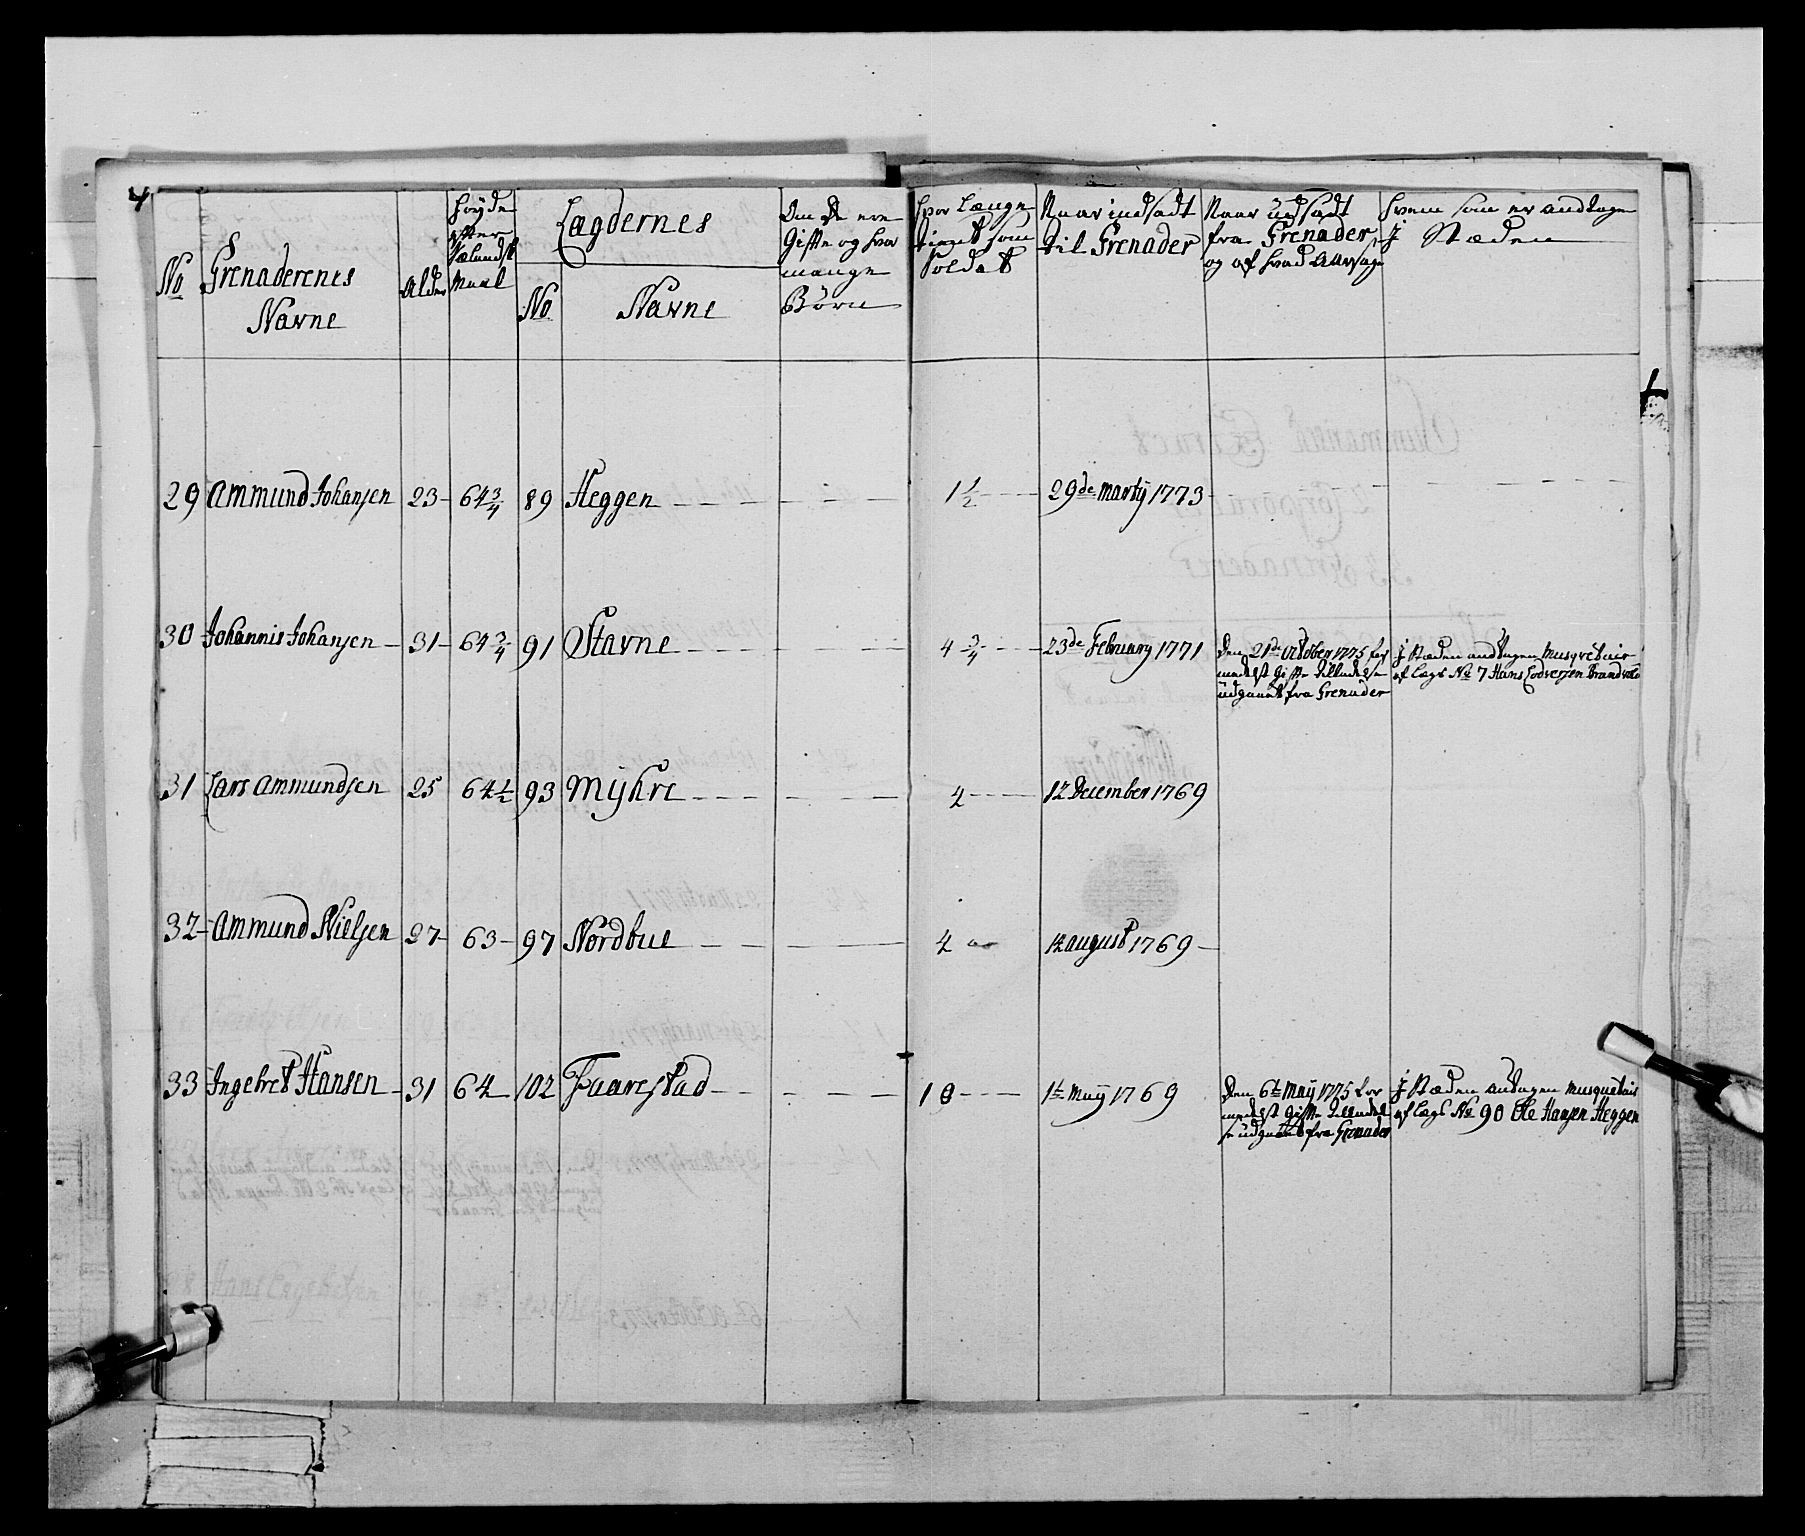 4
No
Grenaderenes
Navne
Alder
Høyde
efter
Sælundsk
Maal
Lægdernes
No
Navne
Om de ere
Gifte og hvor
mange
Børn
Hvor Længe
tient som
Soldat
Naar indsadt
til Grenader
Naar udsadt
fra Grenader
og af hvad Aarsage
Hvem som er andtagen
J Stæden
29 Ammund Johansen 23 64 3/4 89 Heggen 1 1/2 29de Martij 1773
30 Johannis Johansen 31 64 3/4 91 Stavne 4 3/4 23de Februarij 1771
Den 21de October 1775 for
medelst Gifte Tilladelse
udgaaet fra Grenader
J Stæden andtagen Musqvetair
af Lægd No 7 Hans Lodversen Brandvold
31 Lars Ammundsen 25 64 1/2 93 Mÿhre 4 12 December 1769
32 Ammund Nielsen 27 63 97 Nordbue 4 14 August 1769
33 Ingebret Hansen 31 64 102 Faarestad 10 1te Maij 1769
Den 6te Maij 1775 for
medelst Gifte Tilladel
se udgaaet fra Grenader
J Stæden antagen Musquetair
af Lægd No 90 Ole Hansen Heggen